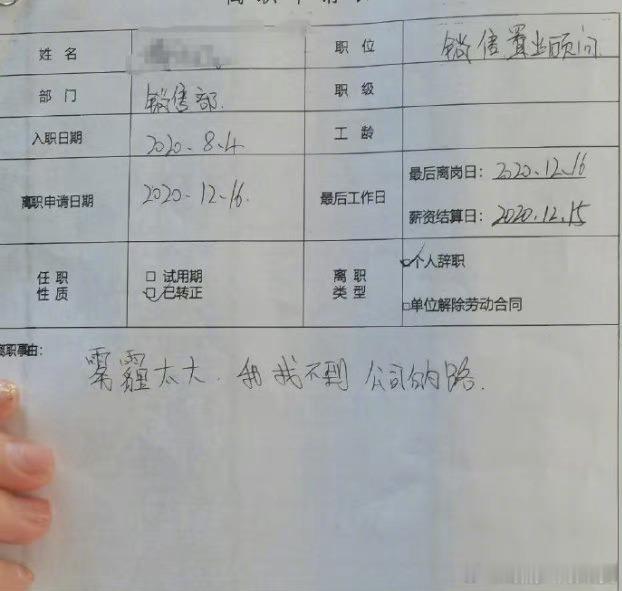 离职申请
姓名 职位 销售置业顾问
部门 销售部. 职级
入职日期 2020.8.4 工龄
离职申请日期 2020.12.16. 最后工作日 最后离岗日: 2020.12.16
薪资结算日: 2020.12.15
任职性质 试用期 离职类型 个人辞职
已转正 单位解除劳动合同
离职事由:
雾霾太大.我找不到公司的路.